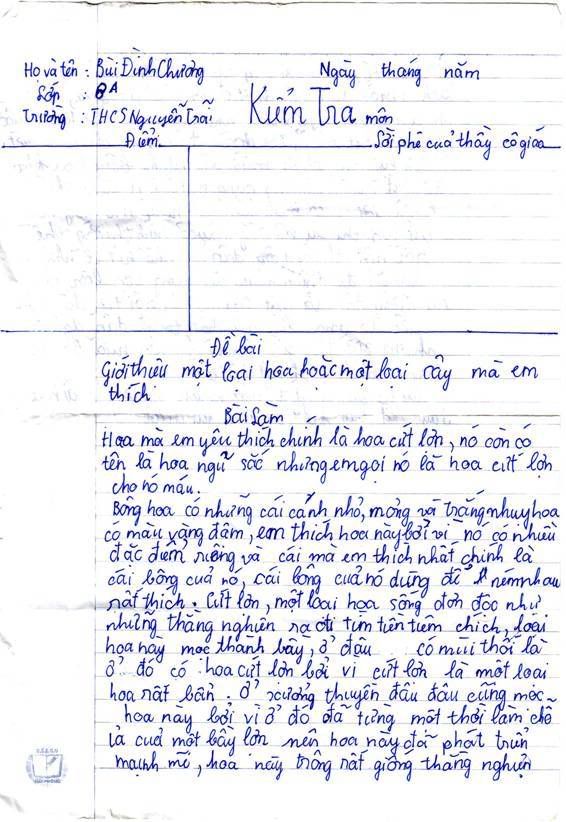 Họ và tên : Bùi Đình Chương
Ngày tháng năm
Lớp : 8A
Trường : THCS Nguyễn Trãi
Kiểm Tra môn
Điểm
Sời phê cuả thầy cô giáo
Đề bài
Giới thiêu một loại hoa hoặc một loại cây mà em
thích
Bài Sàm
Hoa mà em yêu thích chính là hoa cứt lớn, nó còn có
tên là hoa ngũ sắc nhưng em gọi nó là hoa cứt lợn
cho nó máu.
Bông hoa có những cái cánh nhỏ, mỏng và trắng nhuy hoa
có màu vàng đâm, em thích hoa này bởi vì nó có nhiều
đặc điểm riêng và cái mà em thích nhất chính là
cái bông cuả nó, cái bông cuả nó dùng để ném nhau
rất thích. Cứt lớn, một loại hoa sống đơn độc như
những thằng nghiên ra đi tìm tiên tiêm chích, loài
hoa này moc thành bầy, ở đâu có mùi thối là
ở đó có hoa cứt lơn bởi vì cứt lơn là một loại
hoa rất bẩn. Ở xưởng thuyền đâu đâu cũng moc
hoa này bởi vì ở đó đã từng một thời làm chô
ỉa cuả một bầy lơn nên hoa này đã phát triển
mạnh mẽ, hoa này trông rất giống thằng nghiện